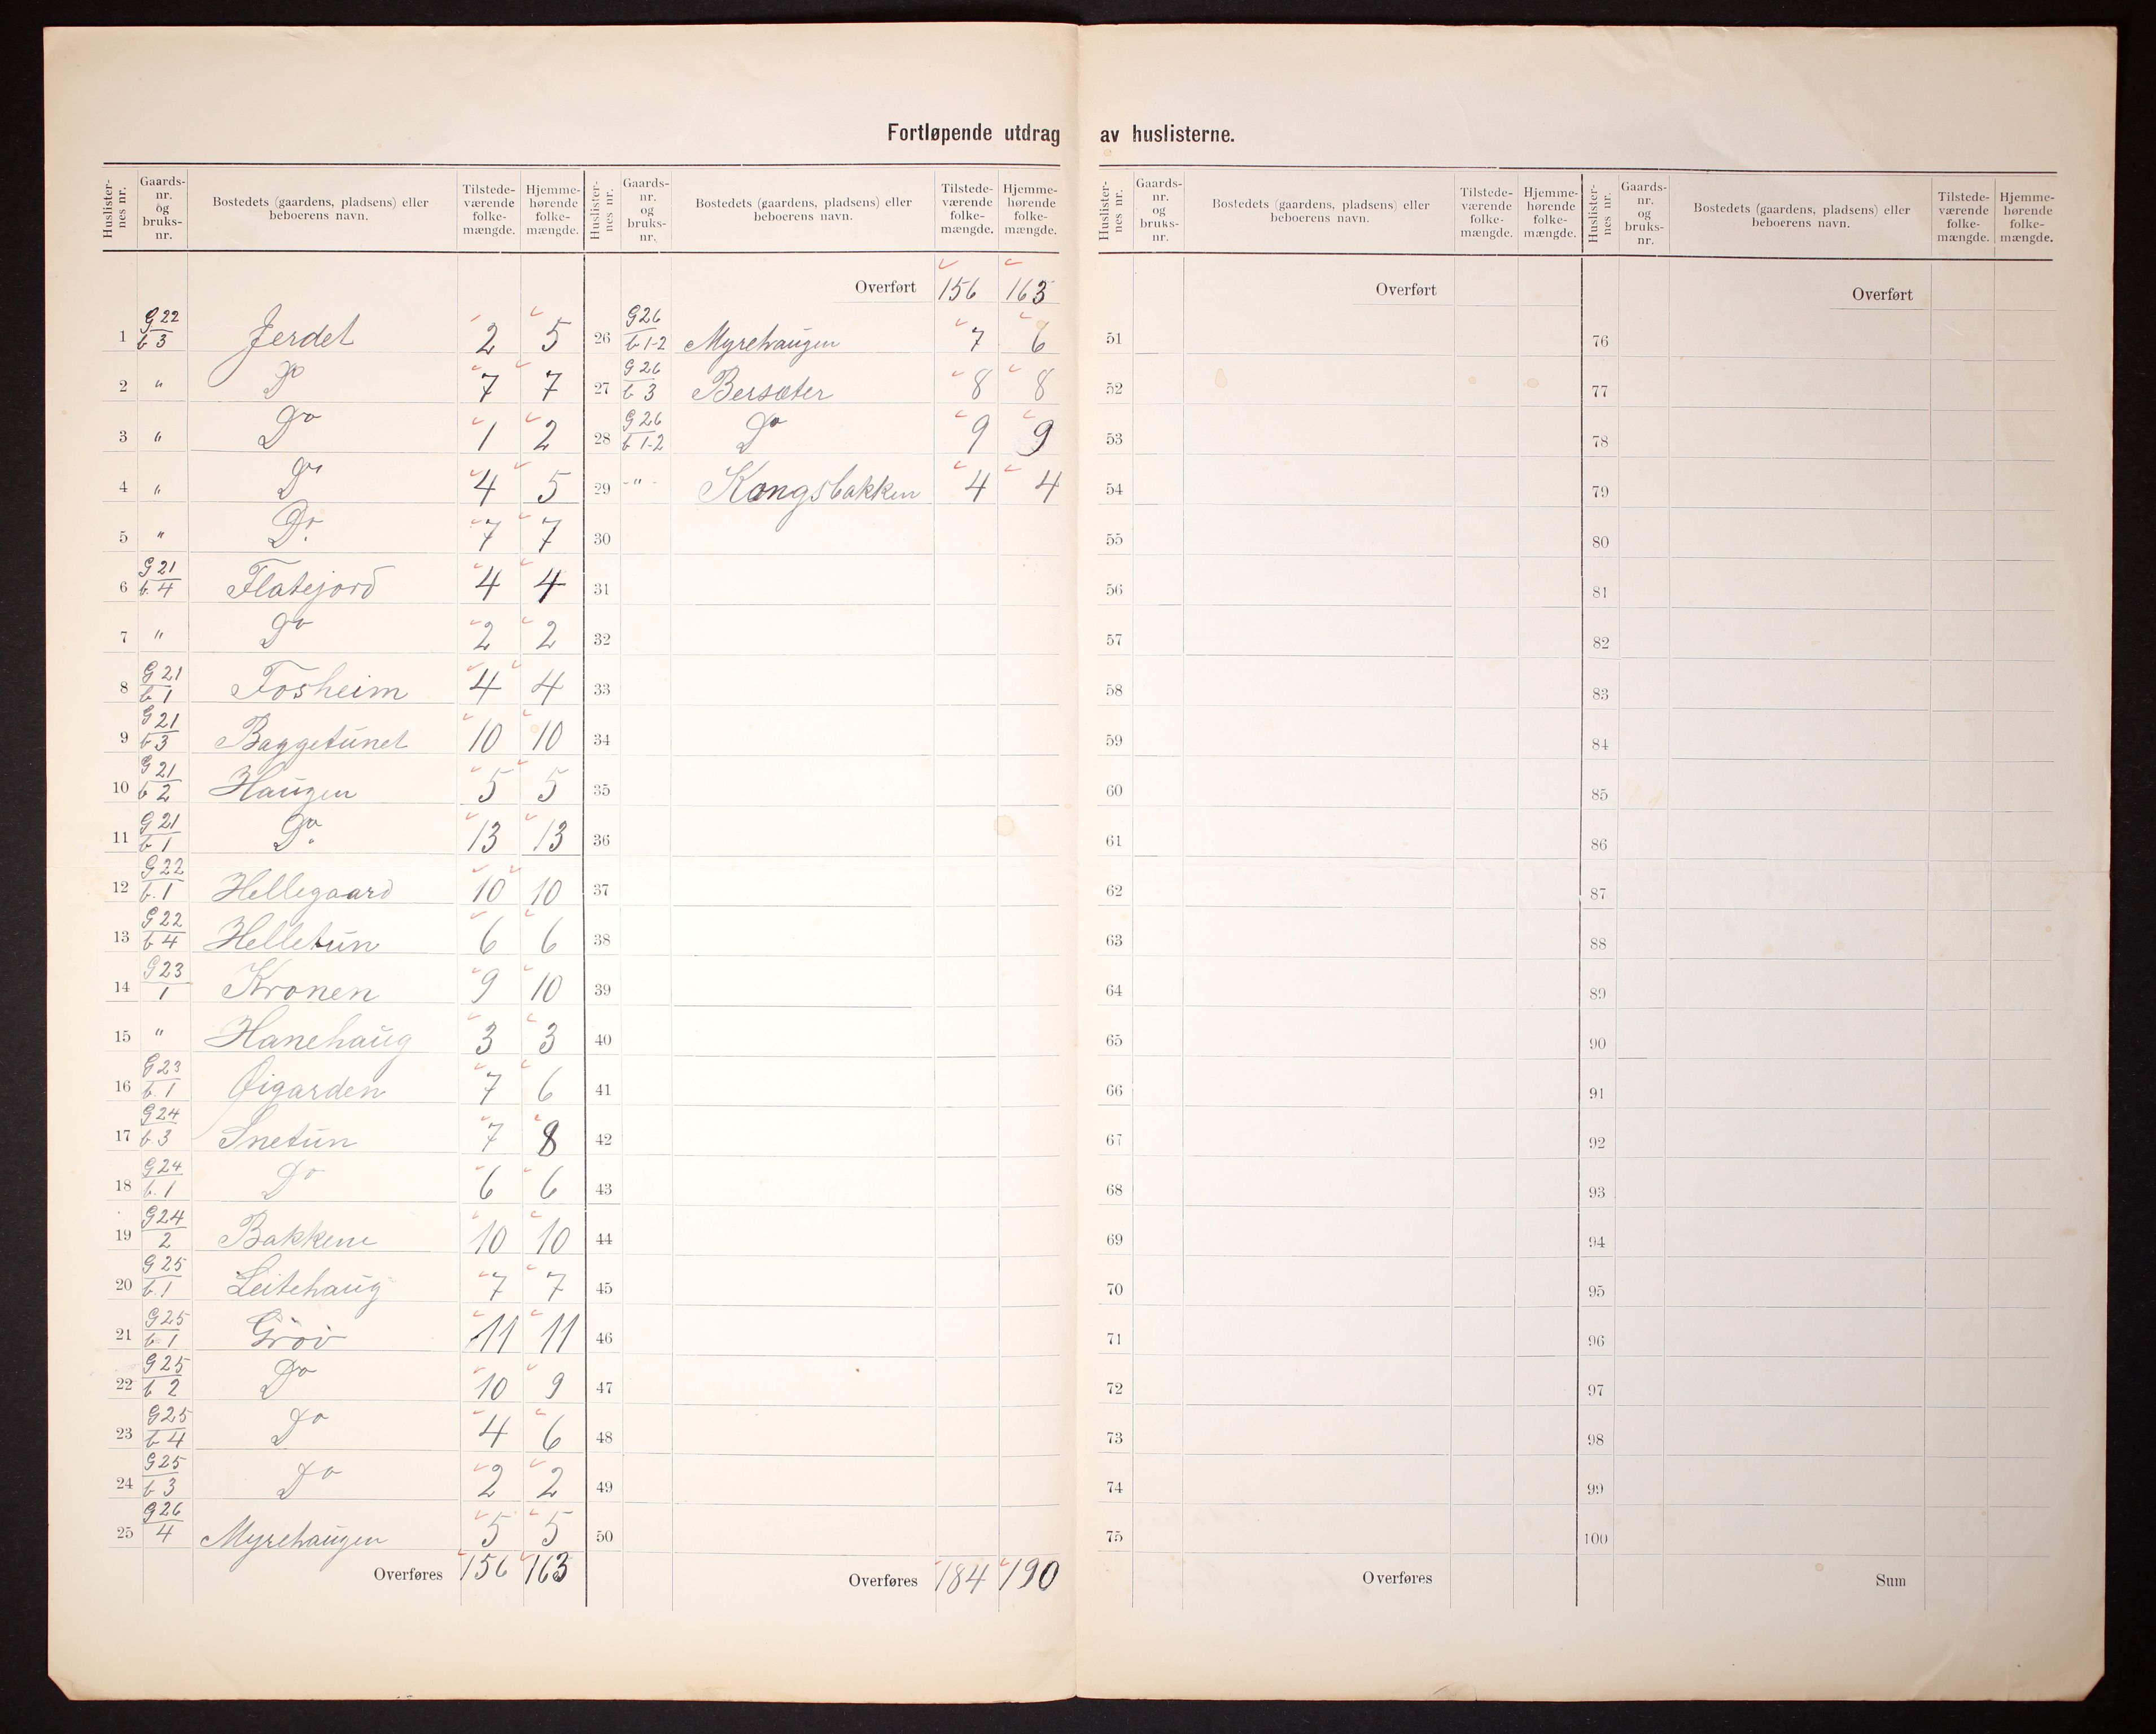 Fortløpende utdrag av huslisterne.
Huslister-nes nr. Gaards-nr. og bruks-nr. Bostedets (gaardens, pladsens) eller beboerens navn. Tilstede-værende folke-mængde. Hjemme-hørende folke-mængde.
1 G 22 b 3 Jerdet 2 5
2 " Do 7 7
3 " Do 1 2
4 " Do 4 5
5 " Do. 7 7
6 G 21 b. 4 Flatejord 4 4
7 " Do 2 2
8 G 21 b 1 Fosheim 4 4
9 G 21 b 3 Baggetunet 10 10
10 G 21 b 2 Haugen 5 5
11 G 21 b 1 Do. 13 13
12 G 22 b. 1 Hellegaard 10 10
13 G 22 b 4 Helletun 6 6
14 G 23 1 Kronen 9 10
15 " Hanehaug 3 3
16 G 23 b. 1 Øigarden 7 6
17 G 24 b 3 Snetun 7 8
18 G 24 b. 1 Do 6 6
19 G 24 2 Bakkene 10 10
20 G 25 b. 1 Leitehaug 7 7
21 G 25 b 1 Grøv 11 11
22 G 25 b 2 Do 10 9
23 G 25 b 4 Do 4 6
24 G 25 b 3 Do 2 2
25 G 26 4 Myrehaugen 5 5
Overføres 156 163
Huslister-nes nr. Gaards-nr. og bruks-nr. Bostedets (gaardens, pladsens) eller beboerens navn. Tilstede-værende folke-mængde. Hjemme-hørende folke-mængde.
Overført 156 163
26 G 26 b 1-2 Myrehaugen 7 6
27 G 26 b 3 Bersæter 8 8
28 G 26 b 1-2 Do 9 9
29 - " - Kongsbakken 4 4
30
31
32
33
34
35
36
37
38
39
40
41
42
43
44
45
46
47
48
49
50
Overføres 184 190
Huslister-nes nr. Gaards-nr. og bruks-nr. Bostedets (gaardens, pladsens) eller beboerens navn. Tilstede-værende folke-mængde. Hjemme-hørende folke-mængde.
Overført
51
52
53
54
55
56
57
58
59
60
61
62
63
64
65
66
67
68
69
70
71
72
73
74
75
Overføres
Huslister-nes nr. Gaards-nr. og bruks-nr. Bostedets (gaardens, pladsens) eller beboerens navn. Tilstede-værende folke-mængde. Hjemme-hørende folke-mængde.
Overført
76
77
78
79
80
81
82
83
84
85
86
87
88
89
90
91
92
93
94
95
96
97
98
99
100
Sum